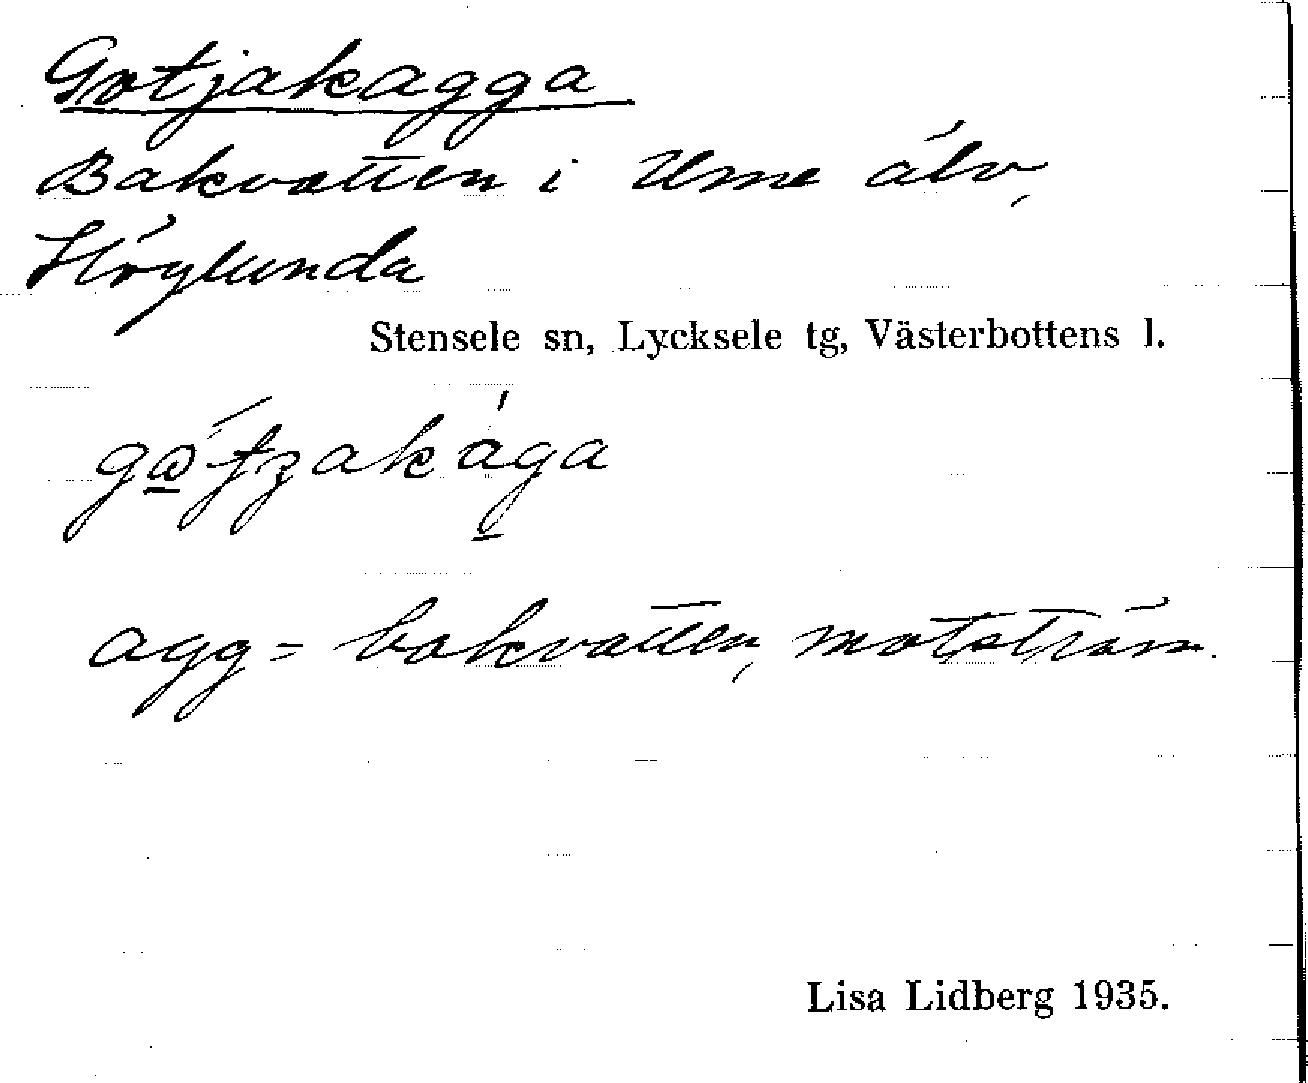 Gotjakagga
Bakvatten i Ume älv,
Höglunda
Stensele sn, Lycksele tg, Västerbottens l.
agg = bakvatten, motström.
Lisa Lidberg 1935.